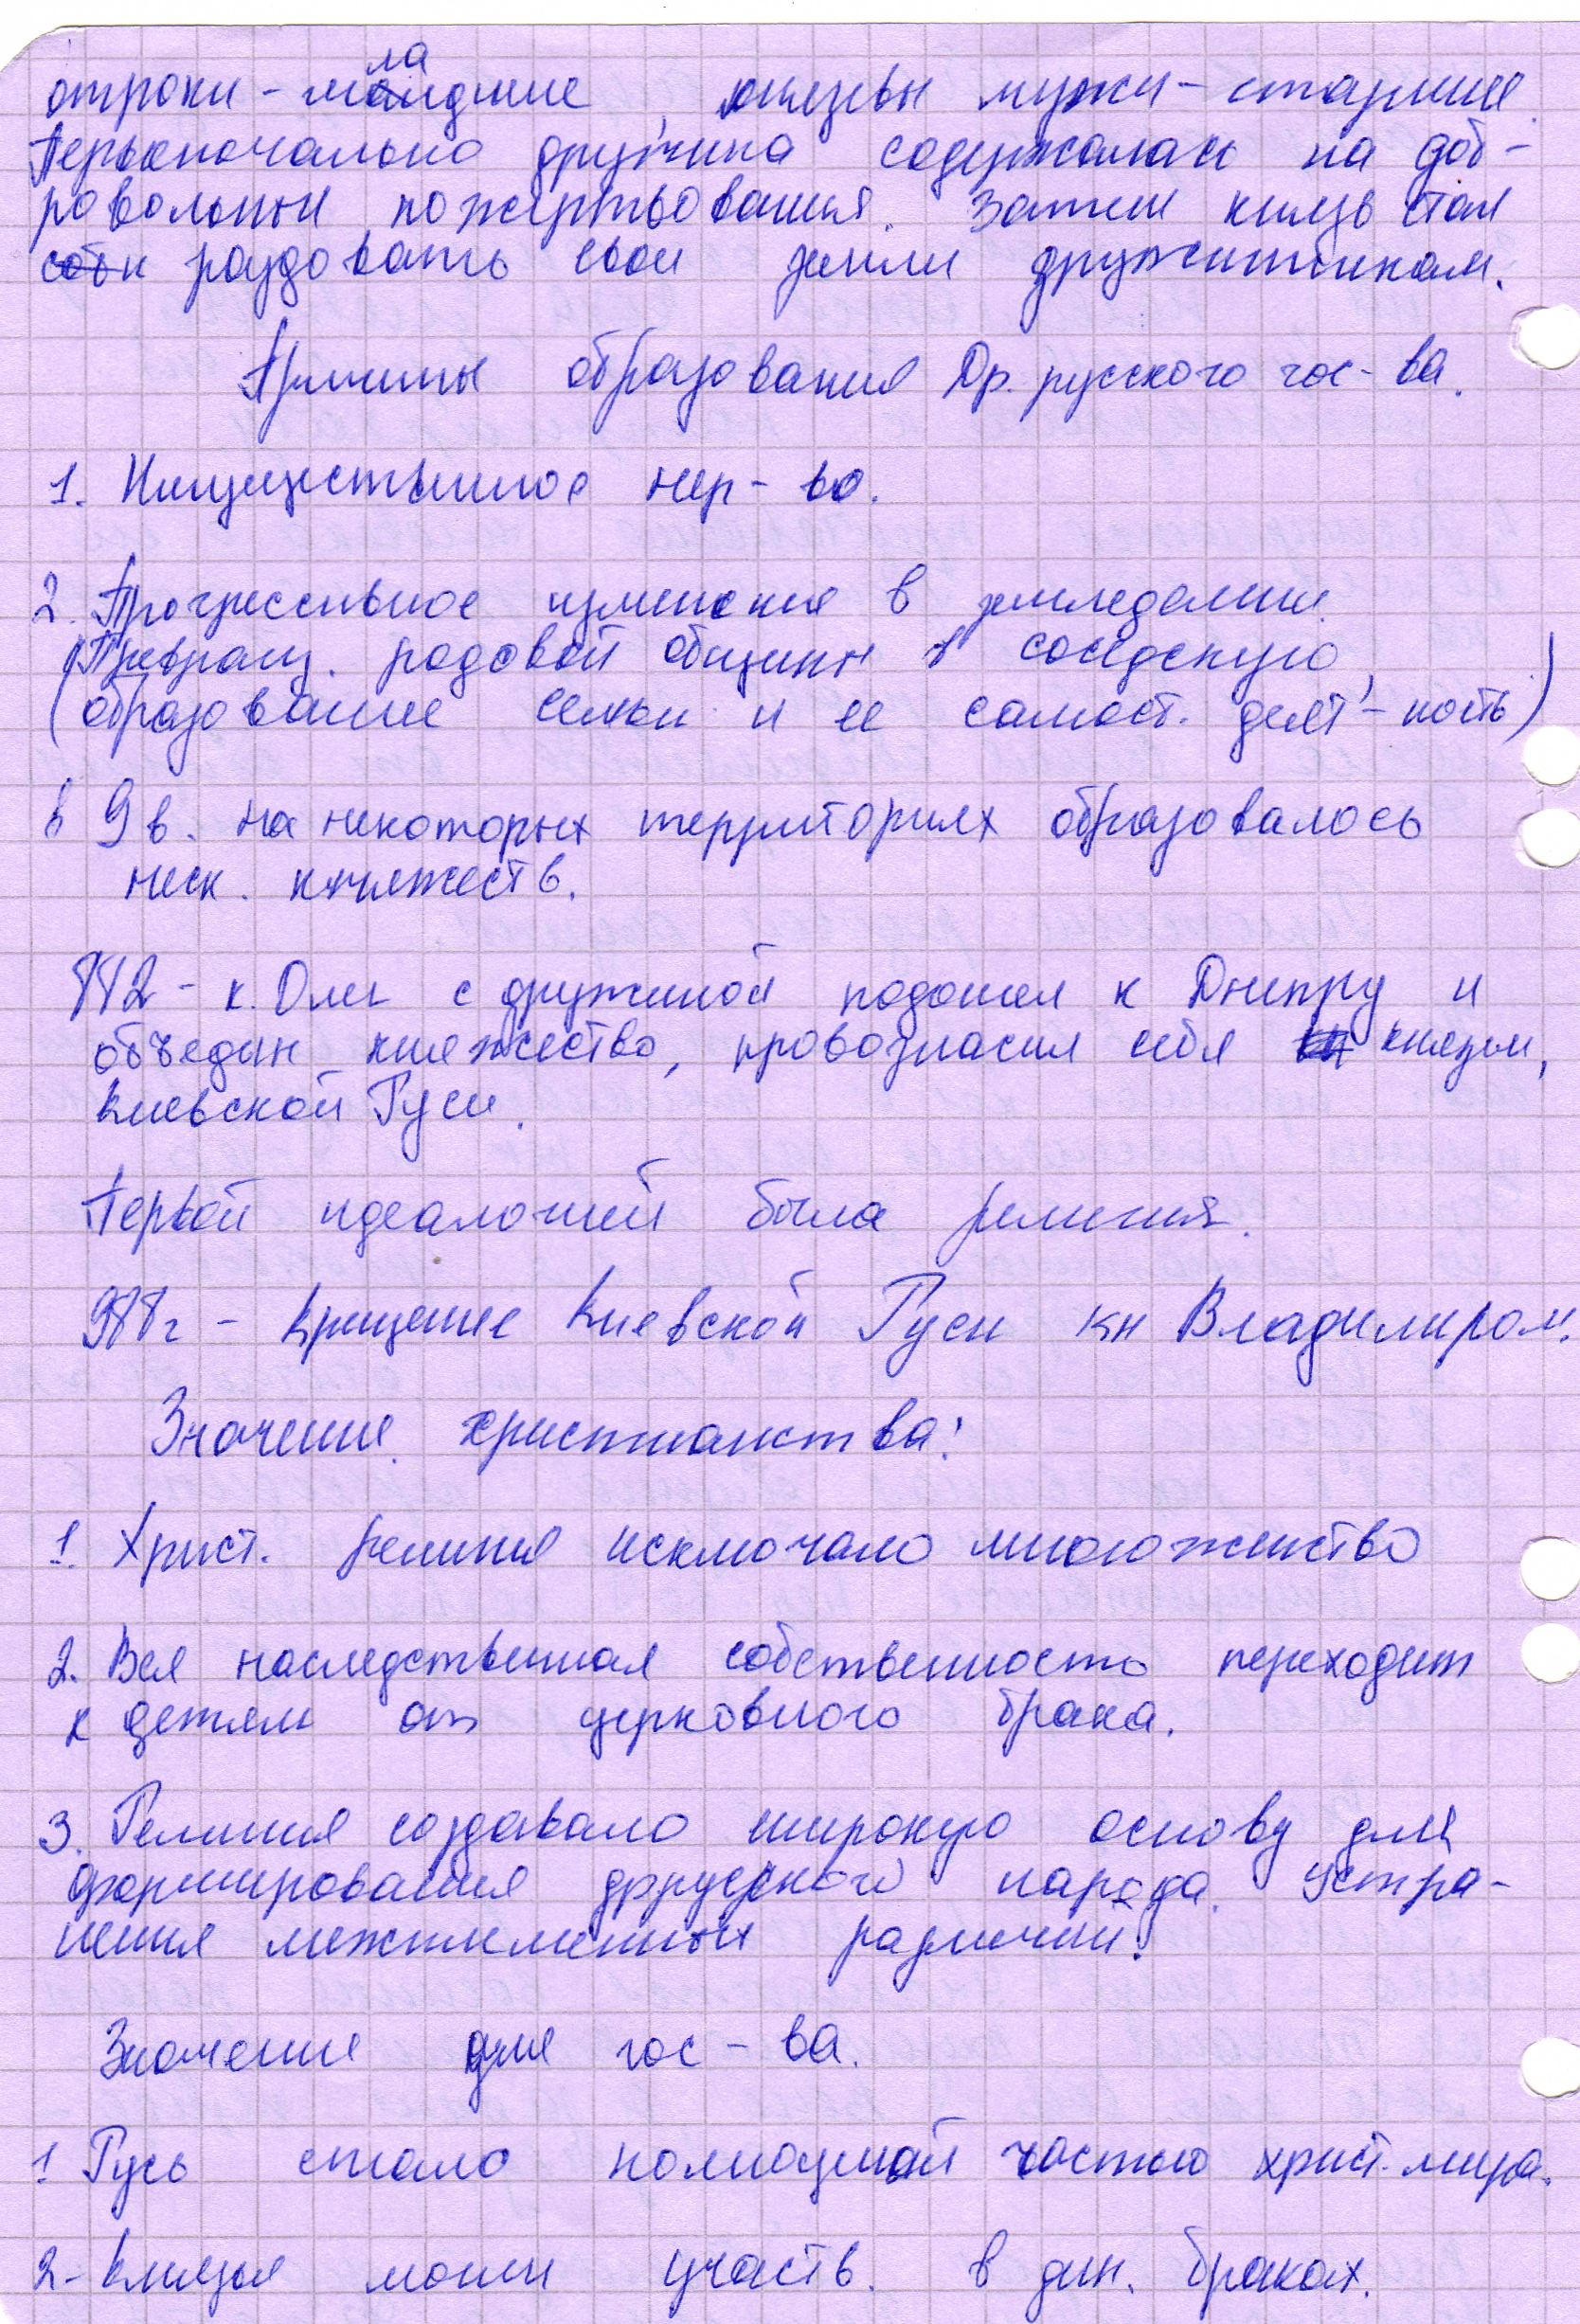 отроки - младшие, князевы мужи - старшие.
Первоночально дружина содержалась на доб-
ровольны пожертвования. Затем князь стал
раздовать свои земли дружинникам.
Причины образования Др. русского гос-ва.
1. Имущественное нер-во.
2. Прогрессивное изменения в земледелии
(Превращ. родовой общины в соседскую,
образование семьи и ее самост. деят-ность)
в 9 в. на некоторых территориях образовалось
неск. княжеств.
882 - к. Олег с дружиной подошел к Днепру и
объедин княжество, провозгласил себя князем,
Киевской Руси.
Первой идеалогией была религия.
988 г - Крещение Киевской Руси кн Владимиром.
Значение христианства:
1. Христ. религия исключало многоженство
2. Вся наследственная собственность переходит
к детям от церковного брака.
3. Религия создавало широкую основу для
формирования др русского народа. Устра-
нения межплеменных различий.
Значение для гос-ва.
1 Русь стало полноценной частью христ. мира.
2- Князья могли участв. в дин. браках.